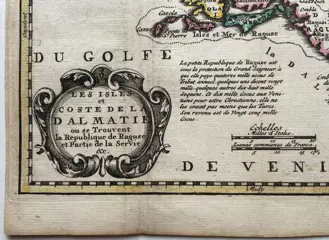 Cazola
Isles et Mer de Raguse
RAGUSE
DU GOLFE
La petite Republique de Raguse est
sous la protection du Grand Seigneur à
qui elle paye quatorze mille ecus de
tribut annuel, quelques uns disent vingt
mille, quelques autres dix huit mille
Sequins. Et dix mille ecus aux Veni-
tiens pour estre Chretienne, elle ne
les craint pas moins que les Turcs.
Son revenu est de Vingt cinq mille
Ecus.
LES ISLES
et
COSTE DE L
DALMATIE
ou se Trouvent
la Republique de Raguse
et Partie de la Servie
&c.
Echelles
Milles d'Italie
Lieues communes de France
DE VENI
Midy
Occident